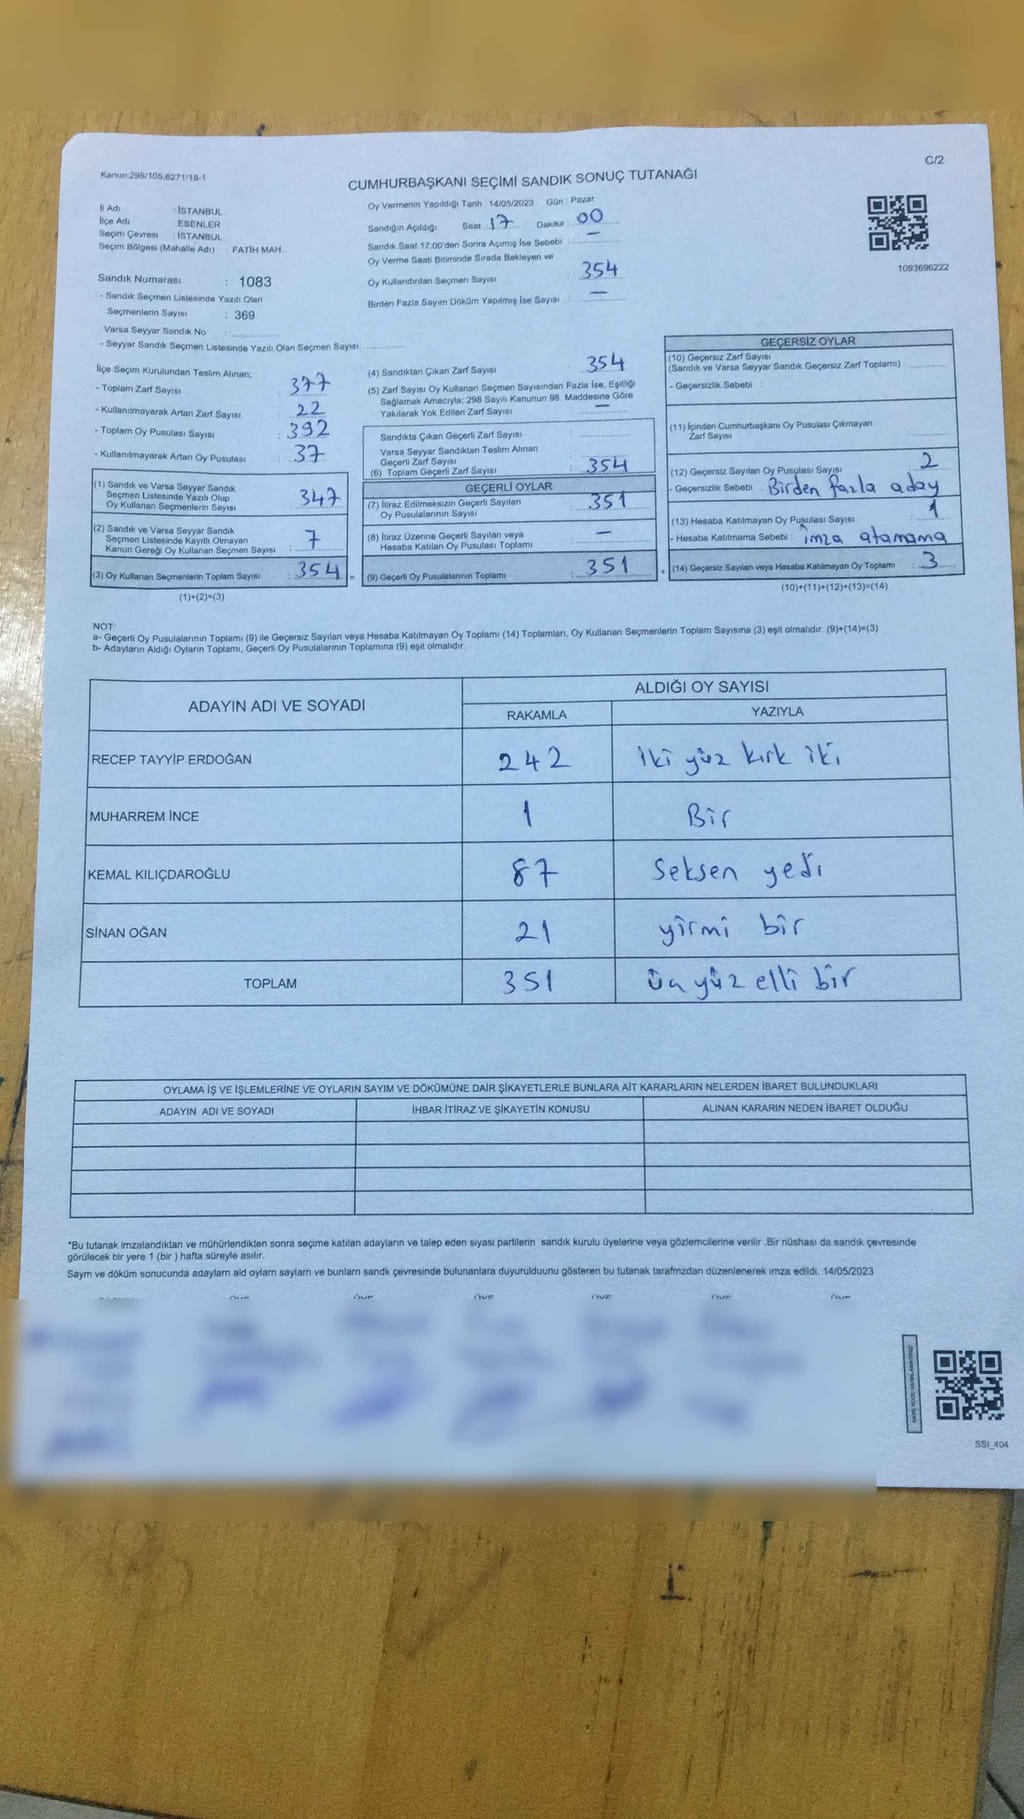 C/2
Kanun;298/105;6271/16-1
CUMHURBAŞKANI SEÇİMİ SANDIK SONUÇ TUTANAĞI
İl Adı : İSTANBUL
İlçe Adı ESENLER
Seçim Çevresi : İSTANBUL
Seçim Bölgesi (Mahalle Adı) : FATİH MAH.
Sandık Numarası : 1083
- Sandık Seçmen Listesinde Yazılı Olan
Seçmenlerin Sayısı : 369
Varsa Seyyar Sandık No :
- Seyyar Sandık Seçmen Listesinde Yazılı Olan Seçmen Sayısı:
Oy Vermenin Yapıldığı Tarih : 14/05/2023 Gün : Pazar
Sandığın Açıldığı Saat : 17 Dakika : 00
Sandık Saat 17:00'den Sonra Açılmış İse Sebebi : –
Oy Verme Saati Bitiminde Sırada Bekleyen ve
Oy Kullandırılan Seçmen Sayısı : 354
Birden Fazla Sayım Döküm Yapılmış İse Sayısı : –
1093696222
İlçe Seçim Kurulundan Teslim Alınan;
- Toplam Zarf Sayısı : 377
- Kullanılmayarak Artan Zarf Sayısı : 22
- Toplam Oy Pusulası Sayısı : 392
- Kullanılmayarak Artan Oy Pusulası : 37
(1) Sandık ve Varsa Seyyar Sandık
Seçmen Listesinde Yazılı Olup
Oy Kullanan Seçmenlerin Sayısı : 347
(2) Sandık ve Varsa Seyyar Sandık
Seçmen Listesinde Kayıtlı Olmayan
Kanun Gereği Oy Kullanan Seçmen Sayısı : 7
(3) Oy Kullanan Seçmenlerin Toplam Sayısı : 354 =
(1)+(2)=(3)
(4) Sandıktan Çıkan Zarf Sayısı : 354
(5) Zarf Sayısı Oy Kullanan Seçmen Sayısından Fazla İse, Eşitliği
Sağlamak Amacıyla; 298 Sayılı Kanunun 98. Maddesine Göre
Yakılarak Yok Edilen Zarf Sayısı : –
Sandıkta Çıkan Geçerli Zarf Sayısı :
Varsa Seyyar Sandıktan Teslim Alınan
Geçerli Zarf Sayısı
(6) Toplam Geçerli Zarf Sayısı : 354
GEÇERLİ OYLAR
(7) İtiraz Edilmeksizin Geçerli Sayılan
Oy Pusulalarının Sayısı : 351
(8) İtiraz Üzerine Geçerli Sayılan veya
Hesaba Katılan Oy Pusulası Toplamı : –
(9) Geçerli Oy Pusulalarının Toplamı : 351 +
GEÇERSİZ OYLAR
(10) Geçersiz Zarf Sayısı
(Sandık ve Varsa Seyyar Sandık Geçersiz Zarf Toplamı) :
- Geçersizlik Sebebi :
(11) İçinden Cumhurbaşkanı Oy Pusulası Çıkmayan
Zarf Sayısı :
(12) Geçersiz Sayılan Oy Pusulası Sayısı : 2
- Geçersizlik Sebebi : Birden fazla aday
(13) Hesaba Katılmayan Oy Pusulası Sayısı : 1
- Hesaba Katılmama Sebebi : imza atamama
(14) Geçersiz Sayılan veya Hesaba Katılmayan Oy Toplamı : 3
(10)+(11)+(12)+(13)=(14)
NOT:
a- Geçerli Oy Pusulalarının Toplamı (9) ile Geçersiz Sayılan veya Hesaba Katılmayan Oy Toplamı (14) Toplamları, Oy Kullanan Seçmenlerin Toplam Sayısına (3) eşit olmalıdır. (9)+(14)=(3)
b- Adayların Aldığı Oyların Toplamı, Geçerli Oy Pusulalarının Toplamına (9) eşit olmalıdır.
ADAYIN ADI VE SOYADI
ALDIĞI OY SAYISI
RAKAMLA YAZIYLA
RECEP TAYYİP ERDOĞAN 242 iki yüz kırk iki
MUHARREM İNCE 1 Bir
KEMAL KILIÇDAROĞLU 87 Seksen yedi
SİNAN OĞAN 21 yirmi bir
TOPLAM 351 üç yüz elli bir
OYLAMA İŞ VE İŞLEMLERİNE VE OYLARIN SAYIM VE DÖKÜMÜNE DAİR ŞİKAYETLERLE BUNLARA AİT KARARLARIN NELERDEN İBARET BULUNDUKLARI
ADAYIN ADI VE SOYADI İHBAR İTİRAZ VE ŞİKAYETİN KONUSU ALINAN KARARIN NEDEN İBARET OLDUĞU
*Bu tutanak imzalandıktan ve mühürlendikten sonra seçime katılan adayların ve talep eden siyasi partilerin sandık kurulu üyelerine veya gözlemcilerine verilir .Bir nüshası da sandık çevresinde
görülecek bir yere 1 (bir ) hafta süreyle asılır.
Sayım ve döküm sonucunda adayların ald oyların sayıları ve bunların sandk çevresinde bulunanlara duyurulduunu gösteren bu tutanak tarafmzdan düzenlenerek imza edildi. 14/05/2023
SSI_404